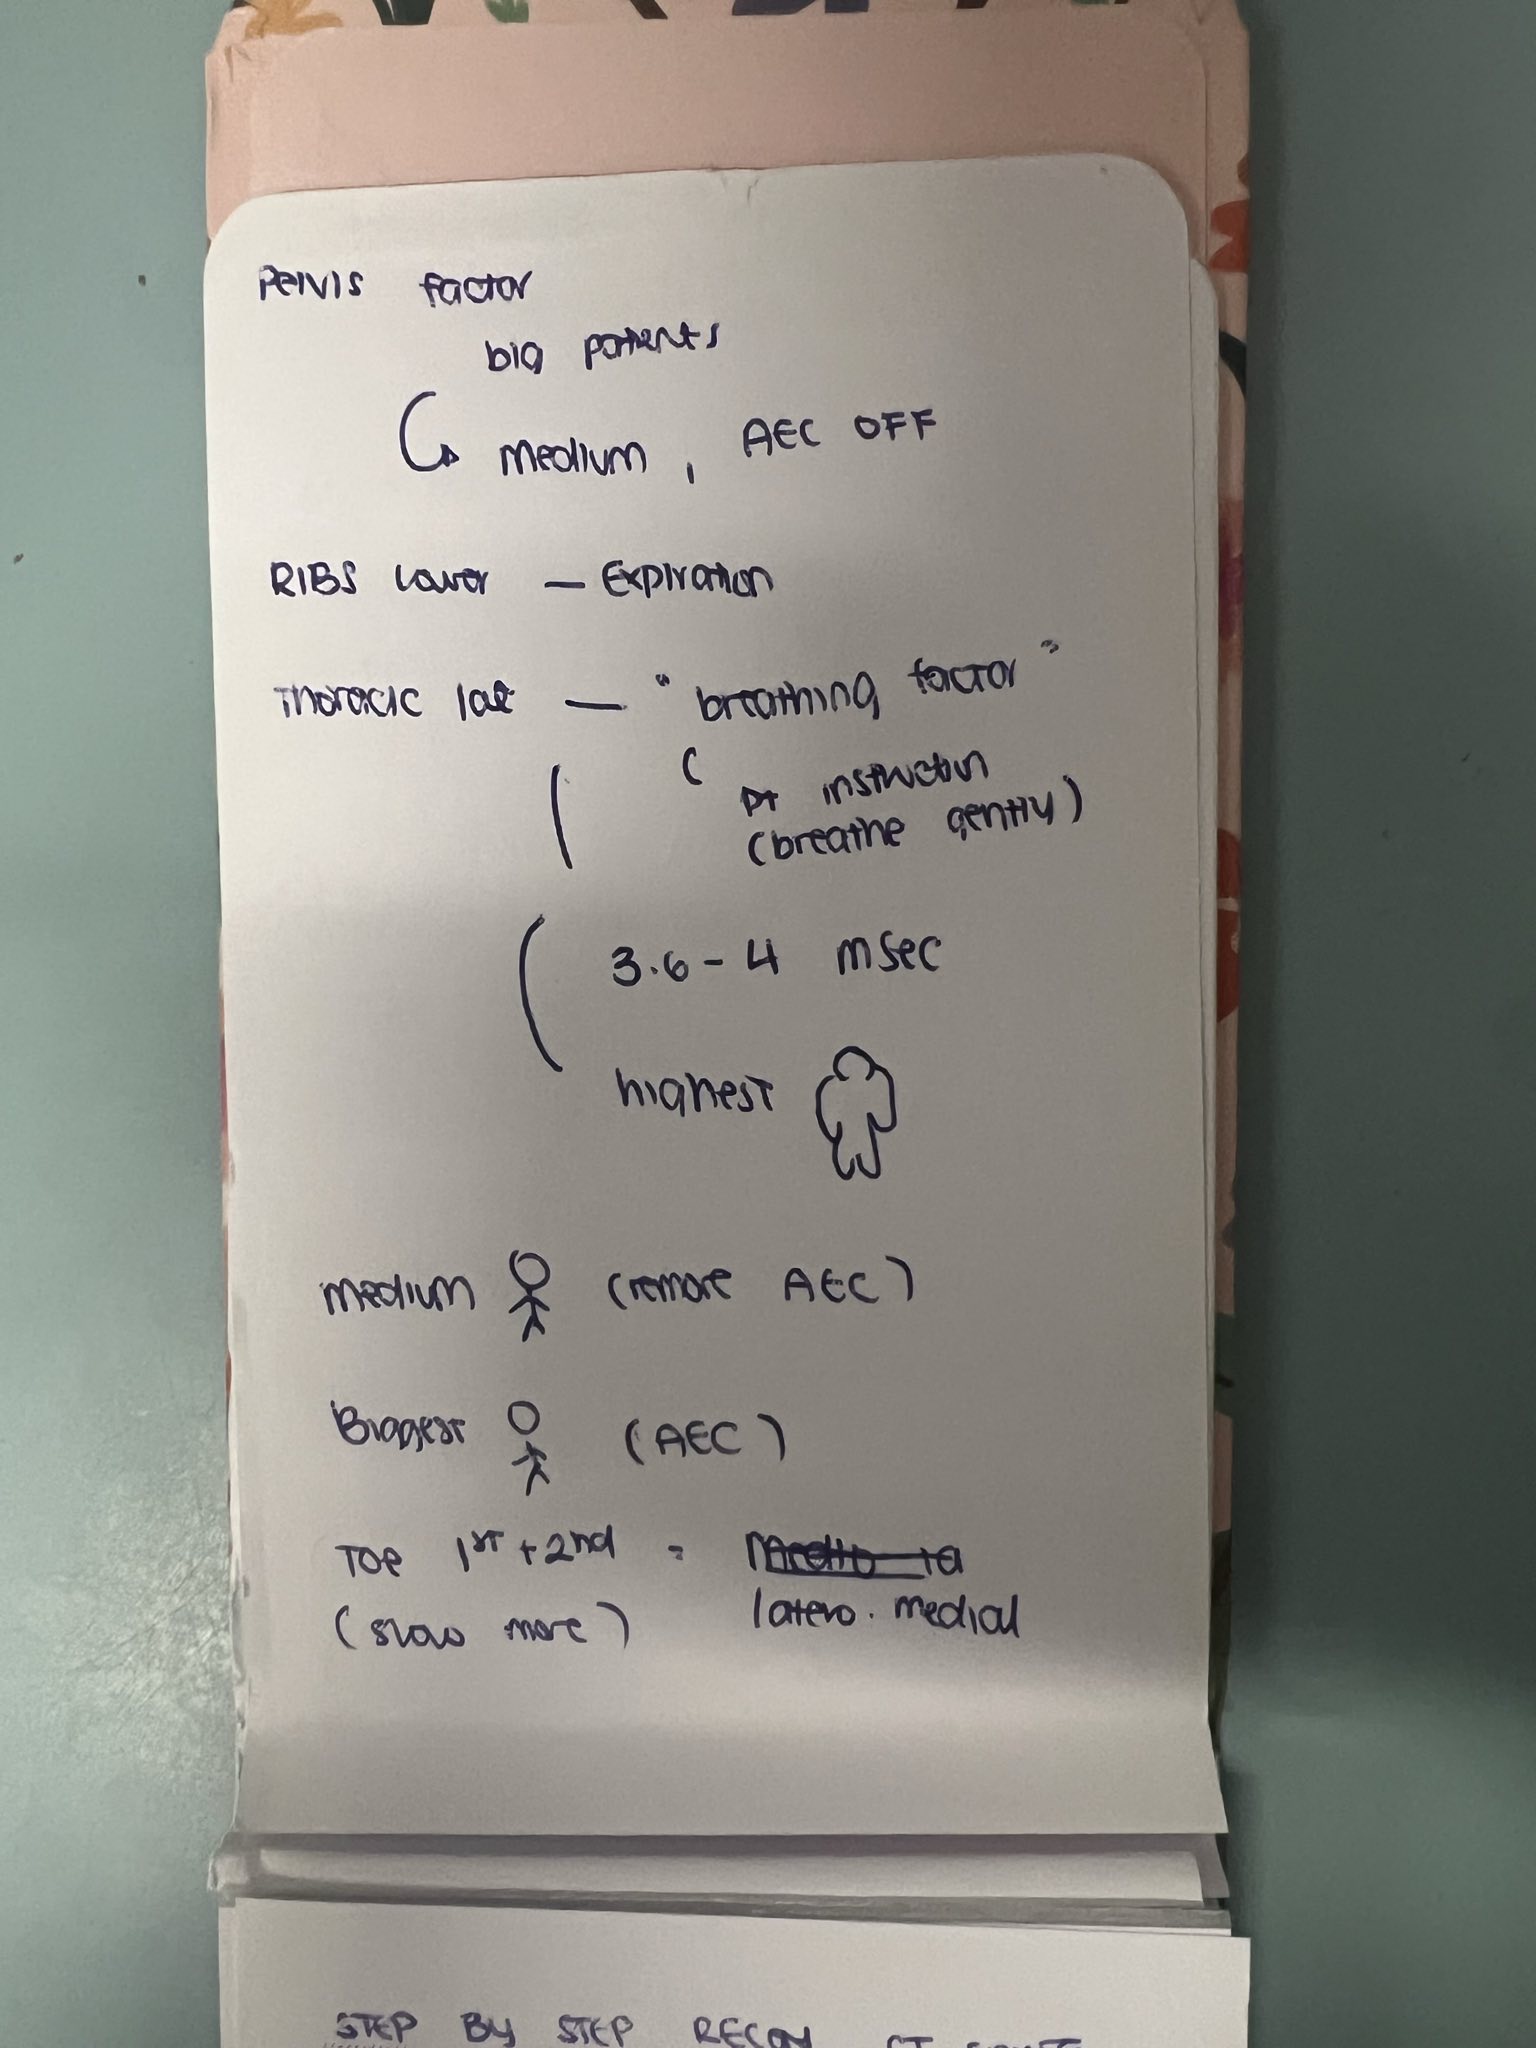 Pelvis factor
big patients
medium, AEC OFF
RIBS lower — Expiration
Thoracic lat — "breathing factor"
pt instruction
(breathe gently)
3.6 - 4 msec
highest
medium (remove AEC)
Biggest (AEC)
TOE 1ST + 2nd =
latero. medial
(show more)
STEP BY STEP